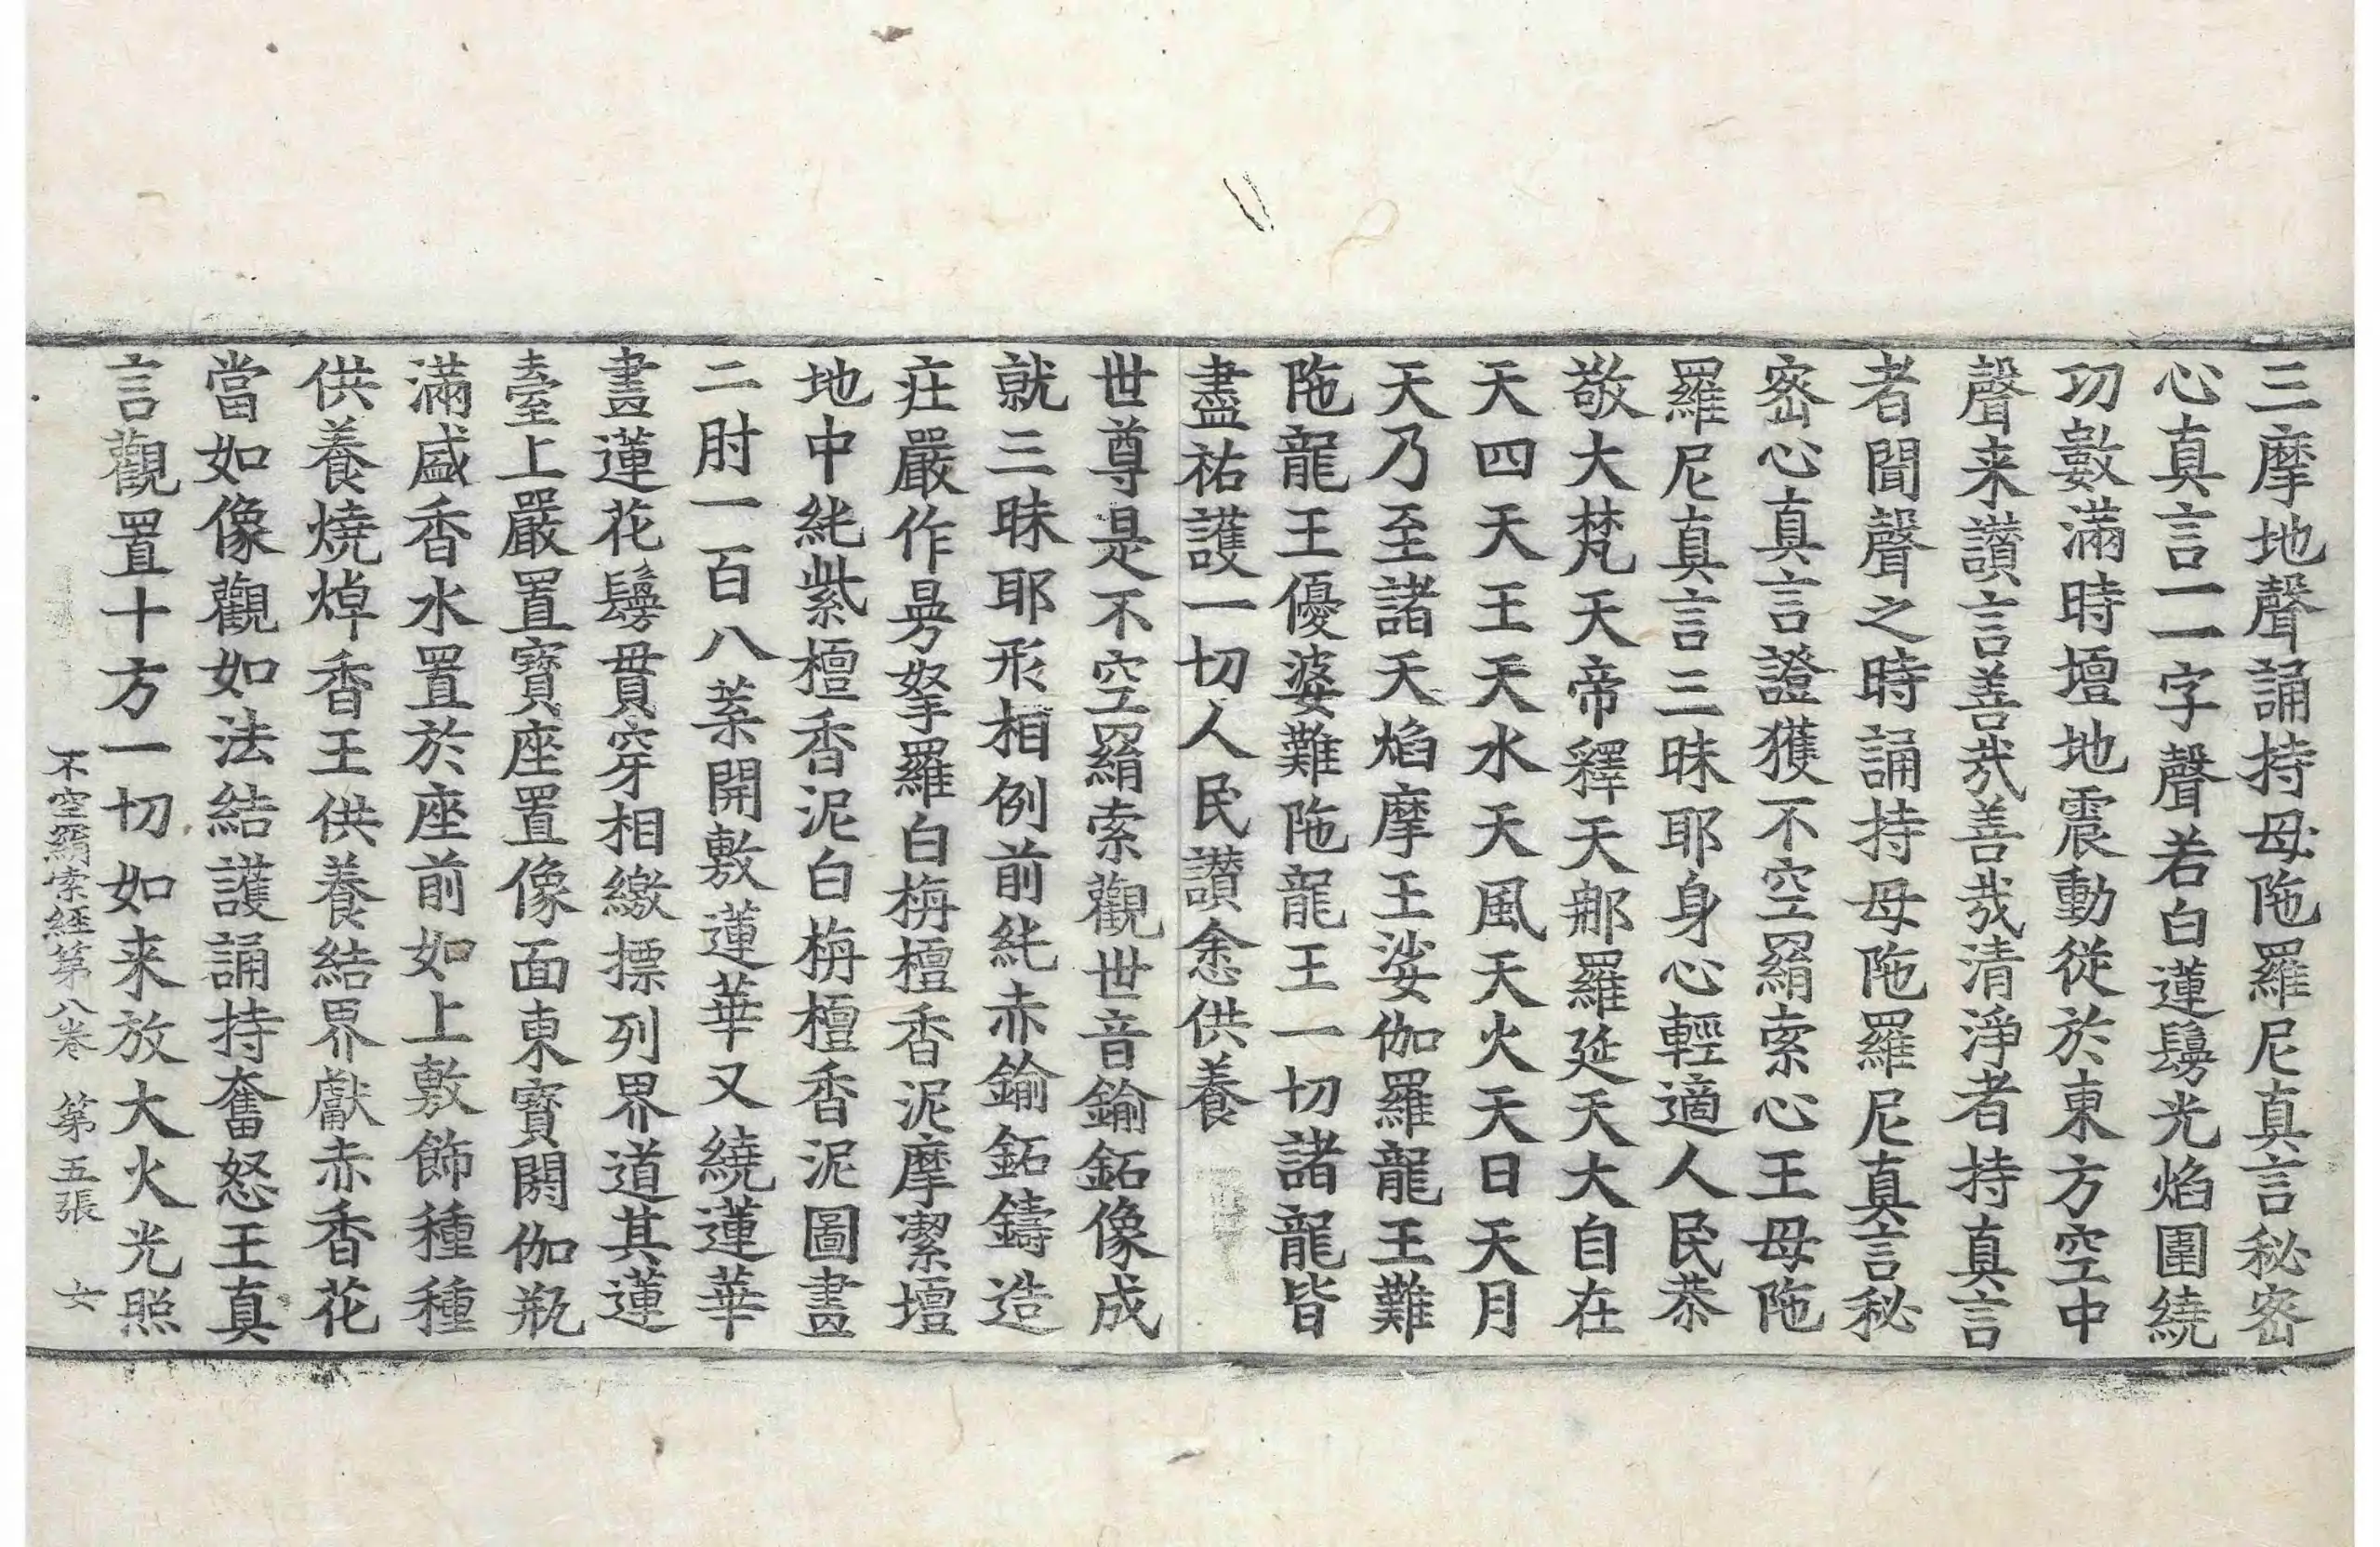 三摩地聲誦持母陁羅尼真言秘密
心真言一一字聲若白蓮鬘光焰圍繞
功數滿時壇地震動從於東方空中
聲来讃言善㢤善㢤清淨者持真言
者聞聲之時誦持母陁羅尼真言秘
密心真言證獲不空羂索心王母陁
羅尼真言三昧耶身心輕適人民恭
敬大梵天帝釋天那羅延天大自在
天四天王天水天風天火天日天月
天乃至諸天焰摩王娑伽羅龍王難
陁龍王優婆難陁龍王一切諸龍皆
盡祐護一切人民讃悆供養
世尊是不空羂索觀世音鍮鉐像成
就三昧耶形相例前純赤鍮鉐鑄造
莊嚴作曼拏羅白栴檀香泥摩潔壇
地中純紫檀香泥白栴檀香泥圖畫
二肘一百八葉開敷蓮華又繞蓮華
畫蓮花鬘貫穿相繳摽列界道其蓮
臺上嚴置寶座置像面東寶閼伽瓶
滿盛香水置於座前如上敷飾種種
供養燒焯香王供養結界獻赤香花
當如像觀如法結護誦持奮怒王真
言觀置十方一切如来放大火光照
不空羂索經第八卷 第五張 女